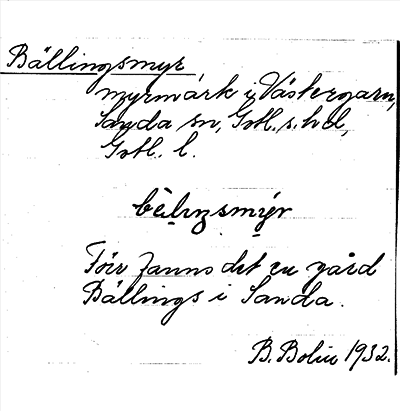 Bällingsmyr
myrmark i Västergarn,
Sanda sn, Gotl. s. hd,
Gotl. l.
Förr fanns det en gård
Bällings i Sanda.
B. Bolin 1932.